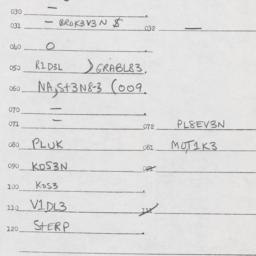 030 —
031 — BROK3V3N $ 038 —
040 O
050 RIDEL ) GRABL83.
060 NA,St3N8-3 (009.
070 —
071 — 078 PL8EV3N
080 PLUK 081 MOT1K3
090 KOS3N
100 KOS3
110 V1DL3
120 StERP